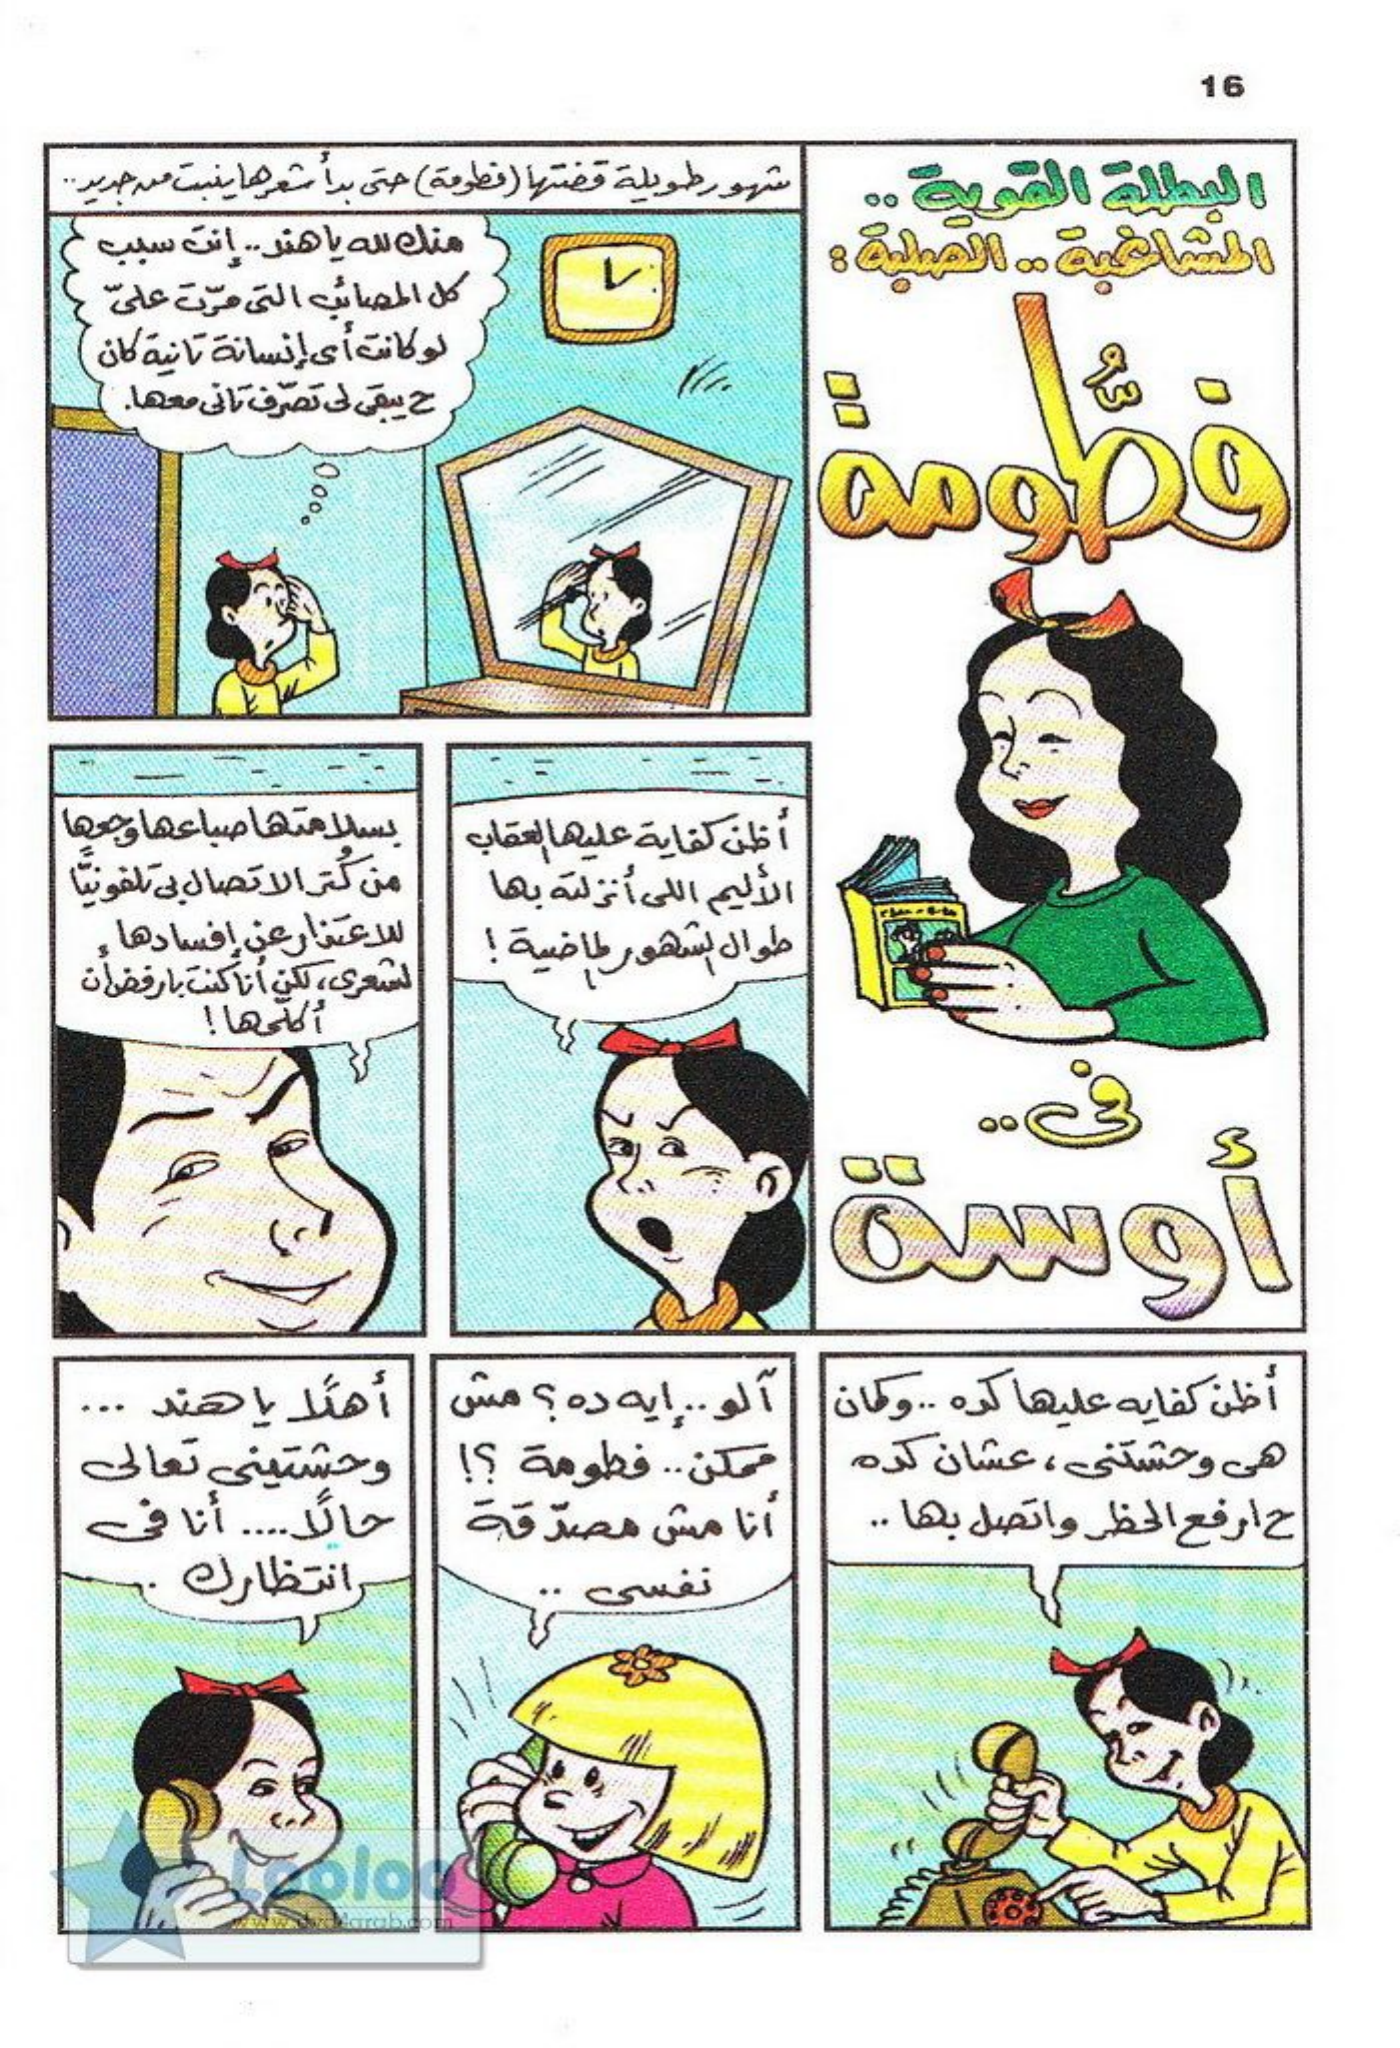 16
البطلة القوية ..
المشاغبة .. الصلبة :
فطُّومة
فى ..
أوسة
شهور طويلة قضتها (فطومة) حتى بدأ شعرها ينبت من جديد ..
منك لله يا هند .. إنت سبب
كل المصائب التى مرّت علىّ
لو كانت أى إنسانة تانية كان
ح يبقى لى تصرّف تانى معها.
أظن كفاية عليها العقاب
الأليم اللى أنزلته بها
طوال الشهور الماضية !
بسلامتها صباعها وجعها
من كُتر الاتصال بى تلفونيًّا
للاعتذار عن إفسادها
لشعرى، لكن أنا كنت بارفض أن
أكلّمها !
أظن كفايه عليها كده .. وكمان
هى وحشتنى ، عشان كده
ح ارفع الحظر واتصل بها ..
آلو .. إيه ده ؟ مش
ممكن .. فطومة ؟!
أنا مش مصدّقة
نفسى ..
أهلًا يا هند ...
وحشتينى تعالى
حالًا .... أنا فى
انتظارك .
Looloo
www.dvd4arab.com